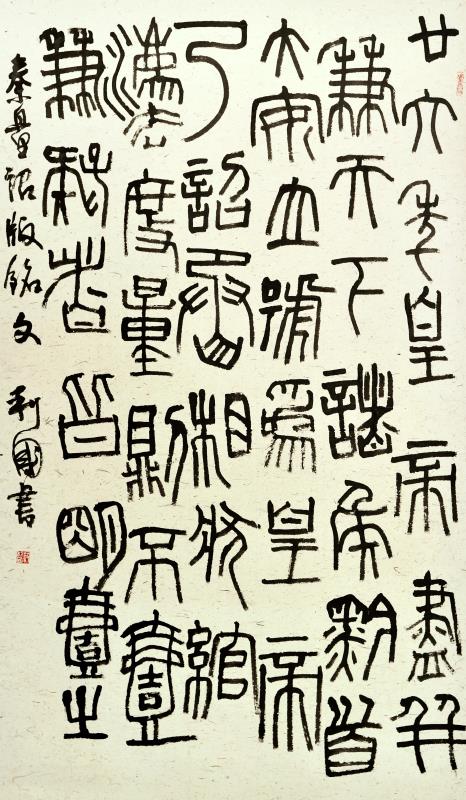 廿六年皇帝盡并
兼天下諸侯黔首
大安立號為皇帝
乃詔丞相狀綰
灋度量則不壹
歉疑者皆明壹之
秦量詔版銘文 利國書